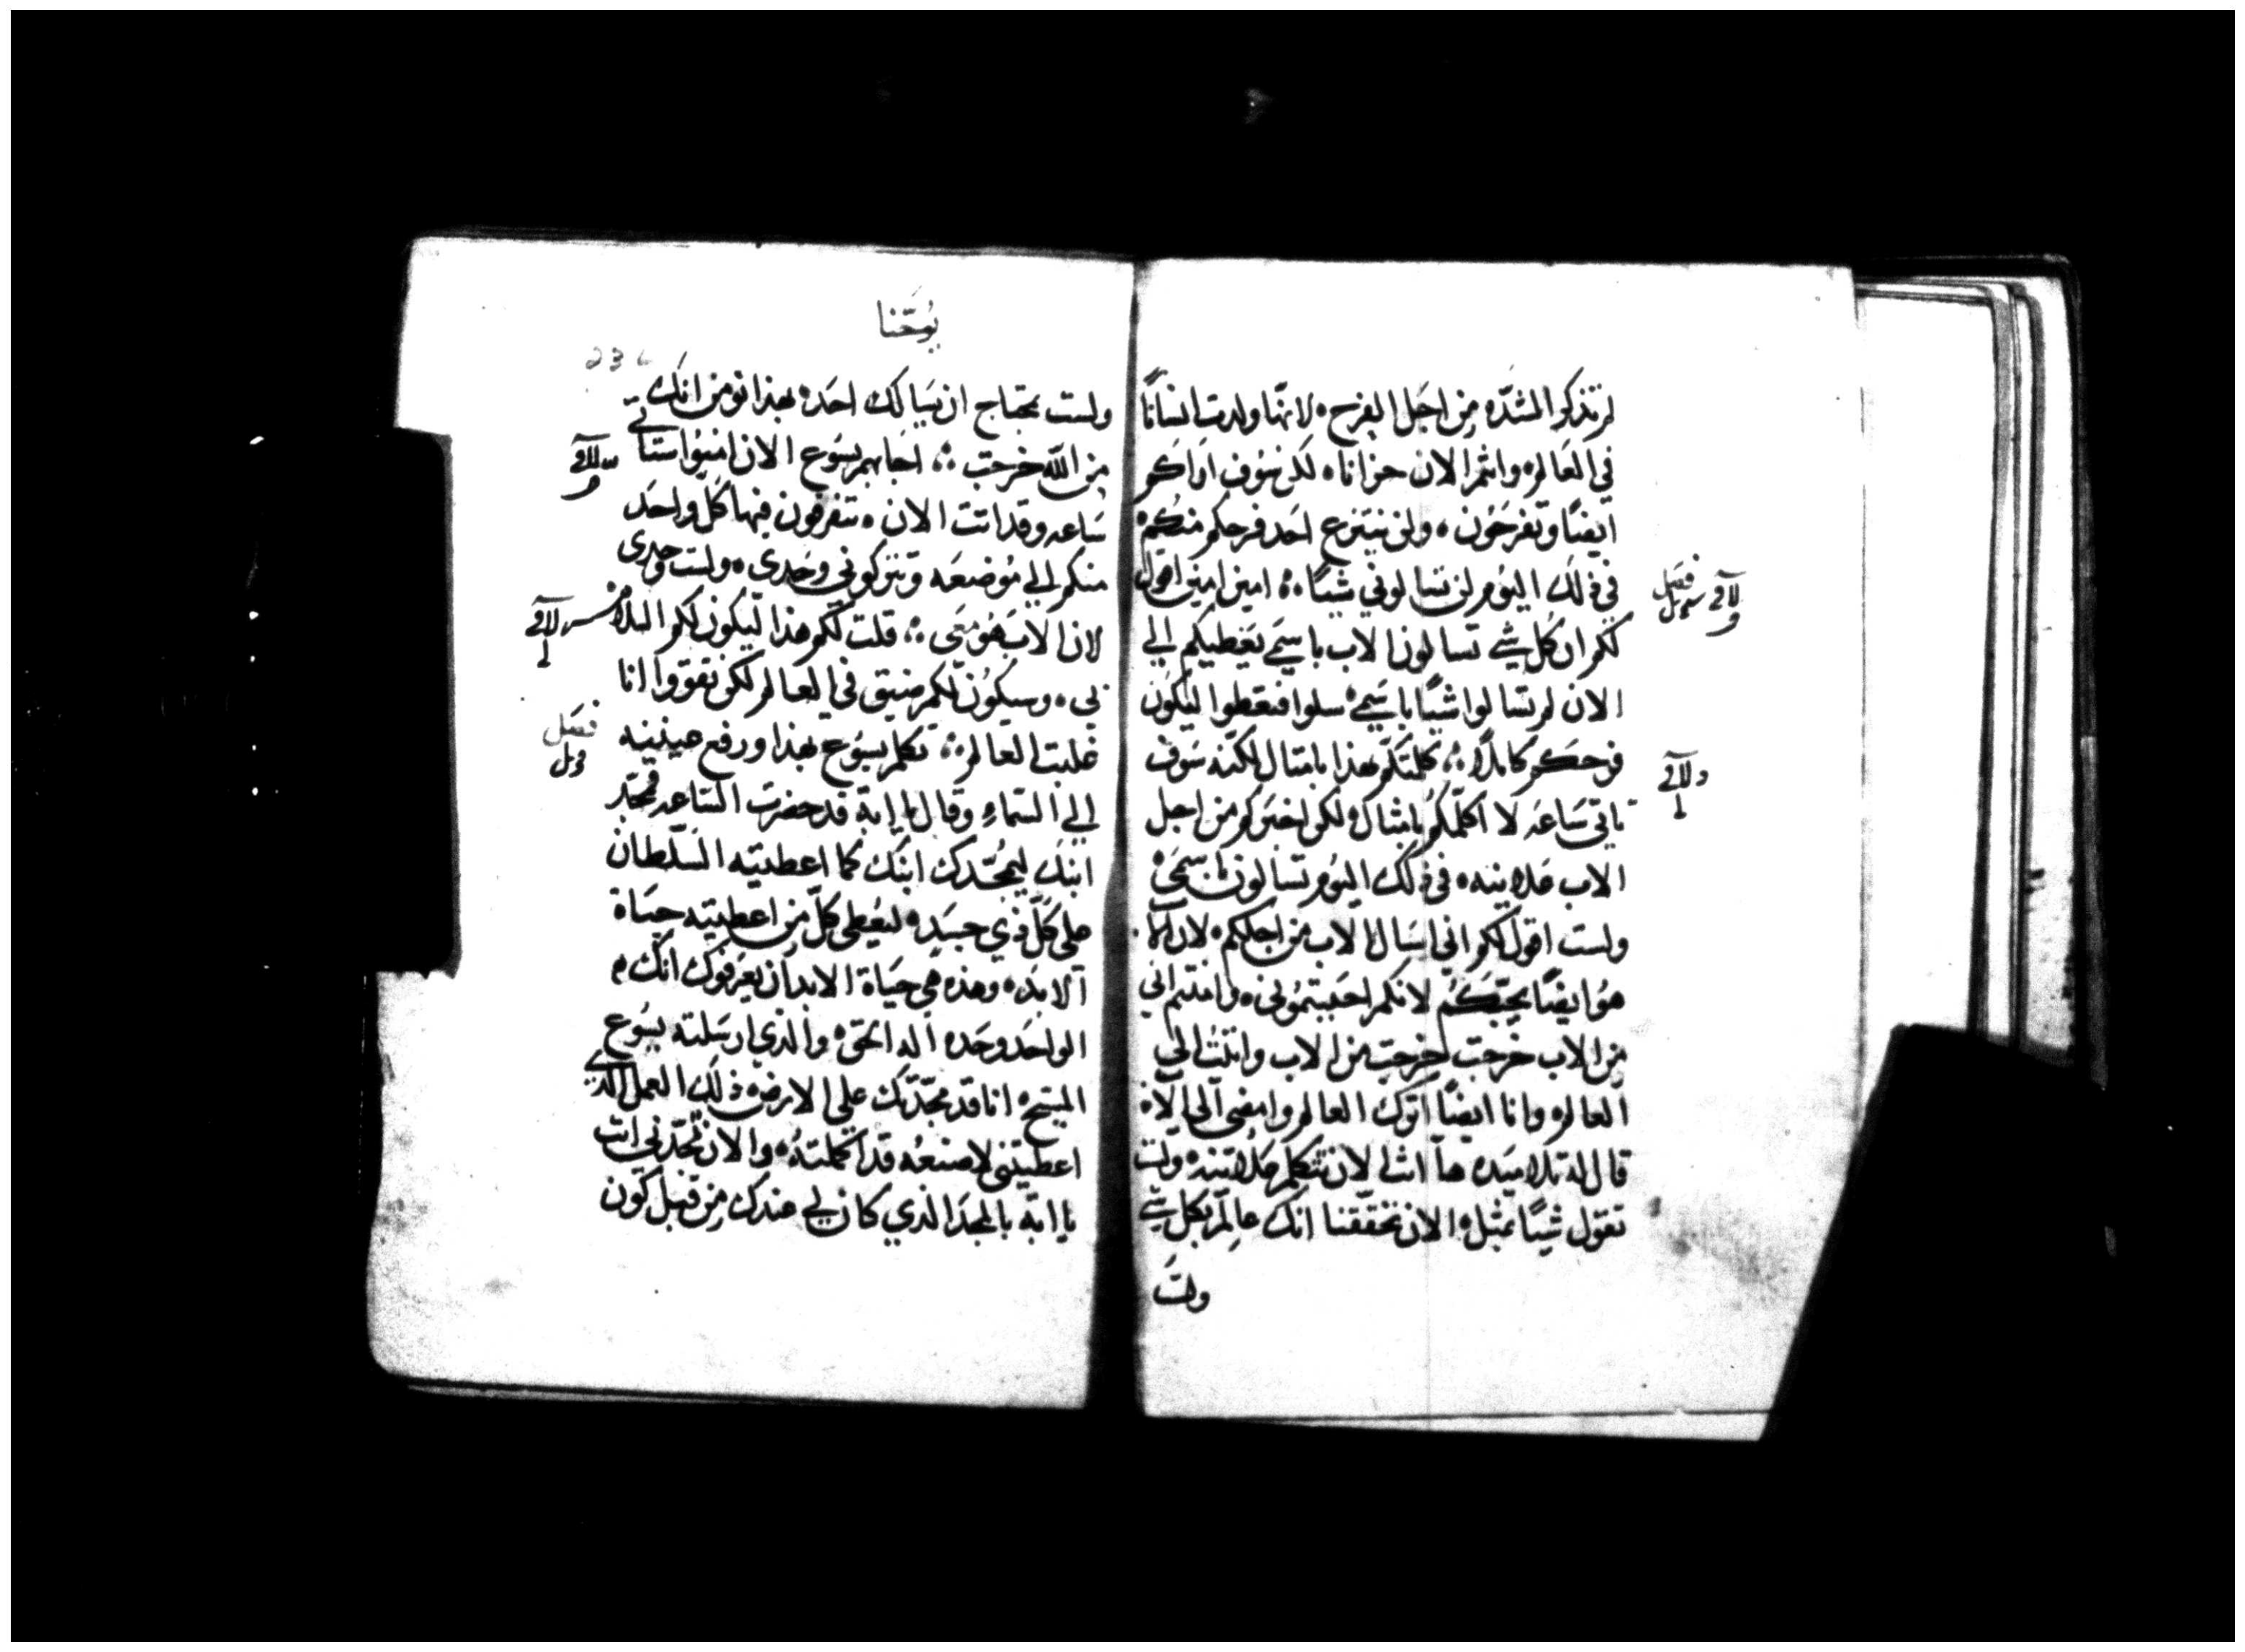 لم تذكر الشدّه من اجل الفرح ٥ لانها ولدت انسانًا
في العالم ٥ وانتم الان حزانا ٥ لكن سوف اراكم
ايضًا وتفرحون ٥ ولن ينتزع احد فرحكم منكم ٥
في ذلك اليوم لن تسالوني شيًا ٥ امين امين اقول
لكم ان كل شي تسالون الاب باسمي يعطيكم الي
الان لم تسالوا شيًا باسمي ٥ سلوا فتعطوا ليكون
فرحكم كاملًا ٥ كلمتكم بهذا بامثال لكنه سوف
تاتي ساعه لا اكلمكم بامثال ٥ لكن اخبركم من اجل
الاب علانيه ٥ في ذلك اليوم تسالون باسمي ٥
ولست اقول لكم اني اسال الاب من اجلكم ٥ لان الاب
هو ايضًا يحبكم لانكم احببتموني ٥ وامنتم اني
من الاب خرجت خرجت من الاب واتيت الي
العالم ٥ وانا ايضًا اترك العالم وامضي الي الاب ٥
قال له تلاميده ها انت الان تتكلم علانيه ٥ ولست
تقول شيًا بمثل ٥ الان تحققنا انك عالم بكل شي
ولست
فصل
يوحنا
ولست بحتاج ان يسالك احد ٥ بهذا نومن انك
من الله خرجت ٥ اجابهم يسوع الان امنوا ستاتي
ساعه وقد اتت الان ٥ تتفرقون فيها كل واحد
منكم الي موضعه وتتركوني وحدي ٥ ولست وحدي
لان الاب هو معي ٥ قلت لكم هذا ليكون لكم السلام
بي ٥ وسيكون لكم ضيق في العالم لكن تقووا انا
غلبت العالم ٥ تكلم يسوع بهذا ورفع عينيه
الي السماء وقال يا ابة قد حضرت الساعه فمجد
ابنك ليمجدك ابنك كما اعطيته السلطان
علي كل ذي جسد ٥ ليعطي كل من اعطيته حياة
الابد ٥ وهذه هي حياة الابد ان يعرفوك انك
الواحد وحده اله الحق ٥ والذي ارسلته يسوع
المسيح ٥ انا قد مجدتك علي الارض ٥ ذلك العمل الذي
اعطيتني لاصنعه قد اكملته ٥ والان مجدني انت
يا ابة بالمجد الذي كان لي عندك من قبل كون
فصل